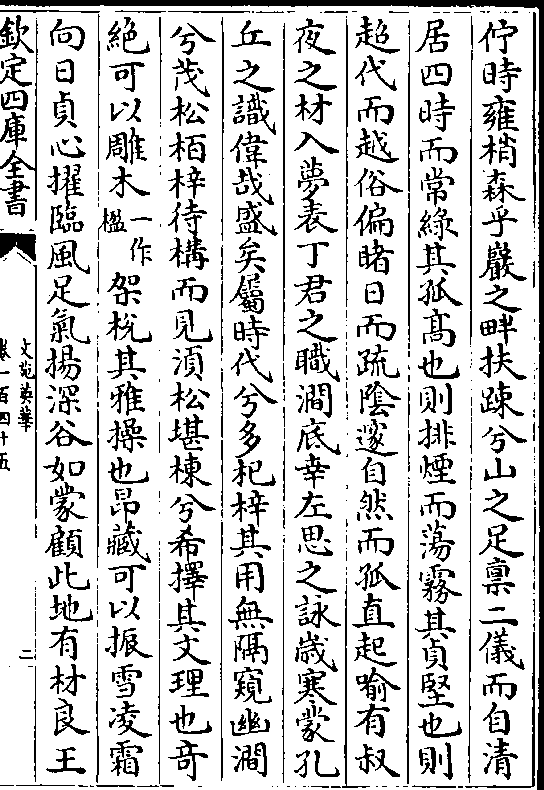 佇時雍梢森乎巖之畔扶踈兮山之足禀二儀而自清
居四時而常綠其孤髙也則排煙而蕩霧其貞堅也則
超代而越俗偏睹日而疏陰邃自然而孤直起喻有叔
夜之材入夢表丁君之職澗底幸左思之詠嵗寒蒙孔
丘之識偉哉盛矣屬時代兮多杞梓其用無隔窺幽澗
兮茂松栢梓待構而見湏松堪棟兮希擇其文理也竒
絶可以雕木一作楹架梲其雅操也昂藏可以振雪凌霜
向日貞心擢臨風足氣揚深谷如蒙顧此地有材良王
欽定四庫全書
文苑英華
卷一百四十五
二